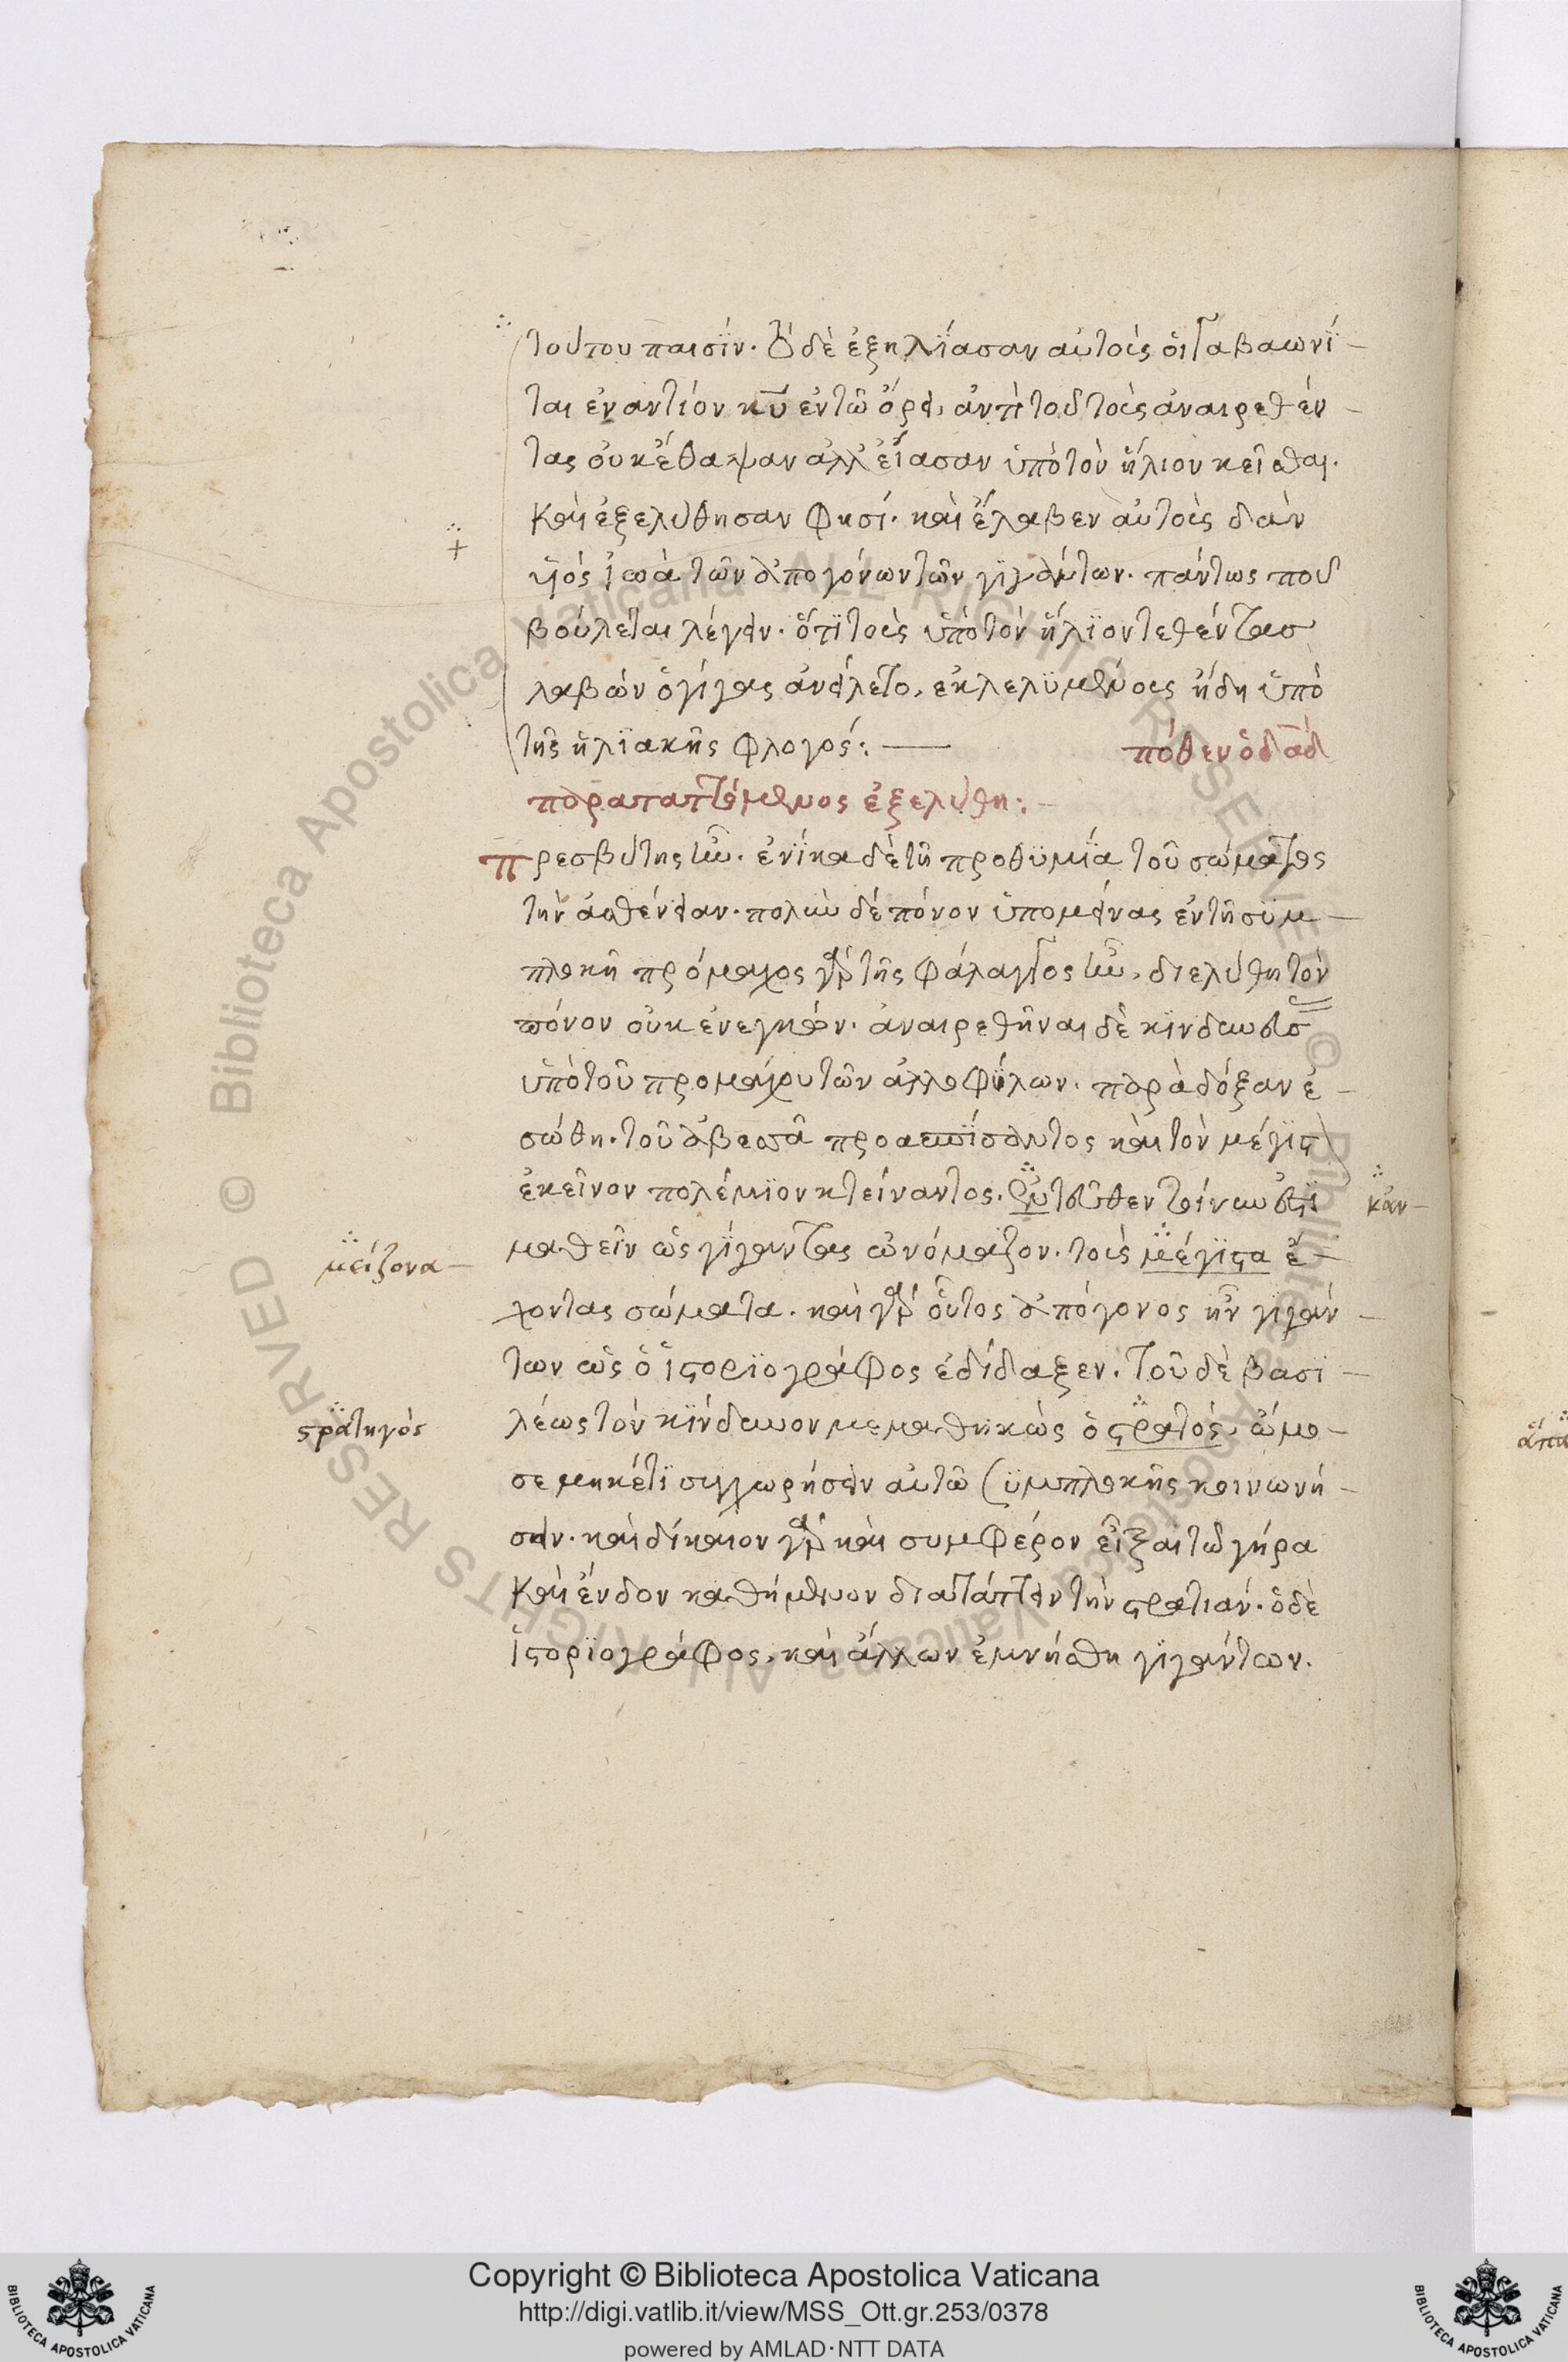 τούτου παισίν. Τὸ δὲ ἐξηλΐασαν αὐτοὺς ὁι Γαβαωνί-
ται ἐναντίον κυ ἐν τῶ ὄρει, ἀντὶ τοῦ τοὺς ἀναιρεθέν-
τας οὐκ ἔθαψαν ἀλλ' εἴασαν ὑπὸ τὸν ἥλιον κεῖσθαι.
Καὶ ἐξελύθησαν φησί. καὶ ἔλαβεν αὐτοὺς δὰν
υἱός ἰωὰ τῶν ἀπογόνων τῶν γϊγάντων. πάντως που
βούλεται λέγειν. ὅτι τοὺς ὑπὸ τὸν ἥλϊον τεθέντασ
λαβὼν ὁ γίγας ἀνείλετο, ἐκλελϋμένους ἤδη ὑπὸ
τῆς ἡλϊακῆς φλογός:
πόθεν ὁ δαδ
παραταττόμενος ἐξελύθη:
πρεσβύτης ἦν. ἐνίκα δὲ τῆ προθϋμία τοῦ σώματος
τὴν ἀσθένειαν. πολὺν δὲ πόνον ὑπομείνας ἐν τῆ σϋμ-
πλοκῆ πρόμαχος γὰρ τῆς φάλαγγος ἦν, διελύθη τὸν
πόνον οὐκ ἐνεγκών. ἀναιρεθῆναι δὲ κϊνδυνευσ
ὑπὸ τοῦ προμάχου τῶν ἀλλοφύλων. παρὰ δόξαν ἐ-
σώθη. τοῦ ἀβεσσᾶ προασπίσαντος καὶ τὸν μέγϊς
ἐκεῖνον πολέμϊον κτείναντος. ἐντεῦθεν τοίνυν ἔστι
μαθεῖν ὡς γίγαντας ὠνόμαζον. τοὺς μέγϊστα ἔ-
χοντας σώματα. καὶ γὰρ οὗτος ἀπόγονος ἦν γϊγάν-
των ὡς ὁ ἱστορϊογράφος ἐδίδαξεν. Τοῦ δὲ βασϊ-
λέως τὸν κϊνδυνον μεμαθηκὼς ὁ στρατός, ὤμο-
σε μηκέτϊ συγχωρήσειν αὐτῶ σϋμπλοκῆς κοινωνή-
σειν. καὶ δίκαιον γὰρ καὶ συμφέρον εἶξαι τῶ γήρα
Καὶ ἔνδον καθήμενον διατάττειν τὴν στρατιάν. ὁ δὲ
ἱστορϊογράφος, καὶ ἄλλων ἐμνήσθη γϊγάντων.
κἀν-
μείζονα-
στρατηγὸς
Copyright © Biblioteca Apostolica Vaticana
http://digi.vatlib.it/view/MSS_Ott.gr.253/0378
powered by AMLAD·NTT DATA